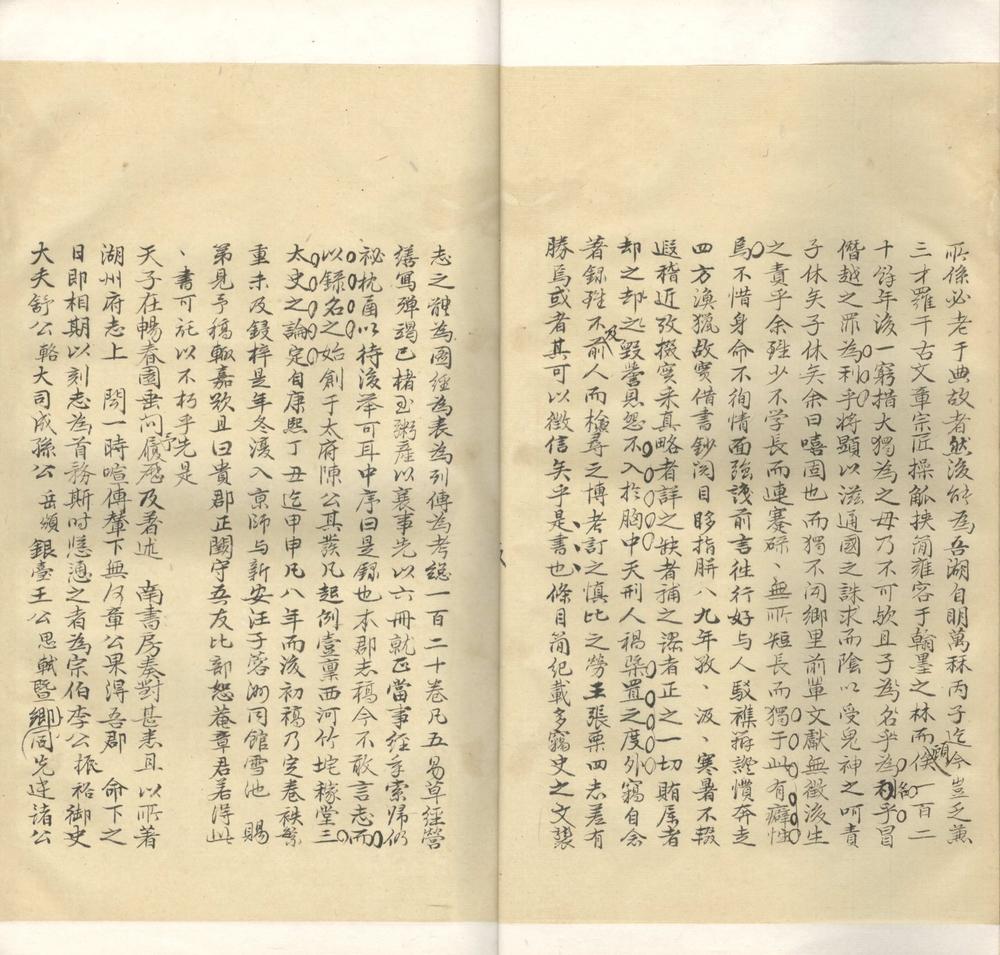 所係必老于典故者然後能為吾湖自明萬秝丙子迄今豈乏蕪
三才羅千古文章宗匠操觚挾簡雍容于翰墨之林而顧俟一百二
十餘年後一窮措大獨為之毋乃不可欤且子為名乎為利乎冒
僭越之罪為利乎將顯以滋通國之誅求而陰以受鬼神之呵責
子休矣子休矣余曰嘻固也而獨不聞鄉里前軰文獻無徵後生
之責乎余殅少不学長而連蹇碌、無所短長而獨于此有癖性
焉不惜身命不徇情面強識前言往行好与人駁襍辨證慣奔走
四方漁獵故實借書鈔閱目眵指胼八九年孜、汲、寒暑不輟
遐稽近攷摭實采真略者詳之缺者補之謬者正之一切賄屬者
却之却之毀譽恩怨不入於胸中天刑人禍槩置之度外竊自念
著錄殅不及前人而檢尋之博考訂之慎比之勞王張栗四志差有
勝焉或者其可以徵信矣乎是、書、也條目簡紀載多竊史之文襲
志之體為圖經為表為列傳為考總一百二十卷凡五易草經營
繕寫殫蠲已橐至粥產以襄事先以六冊就正當事經年索歸仍
祕枕函以待後舉可耳中序曰是録也本郡志稿今不敢言志而
以錄名之始創于太府陳公其發凡起例壹稟西河竹垞稼堂三
太史之論定自康熙丁丑迄甲申凡八年而後初稿乃定卷袟繁
重未及鋟梓是年冬濩入京師与新安汪子蓉洲同館雪池　賜
第見予稿輙嘉歎且曰貴郡正闕守吾友比部恕菴章君若得此
、書可託以不朽乎先是
天子在暢春園垂问履歷及著述　南書房奏對甚悉且以所著
湖州府志上　聞一時喧傳輦下無何章公果淂吾郡　命下之
日即相期以刻志為首務斯时慫恿之者為宗伯李公振裕御史
大夫舒公輅大司成孫公岳頒銀臺王公思軾暨鄉同先逹諸公